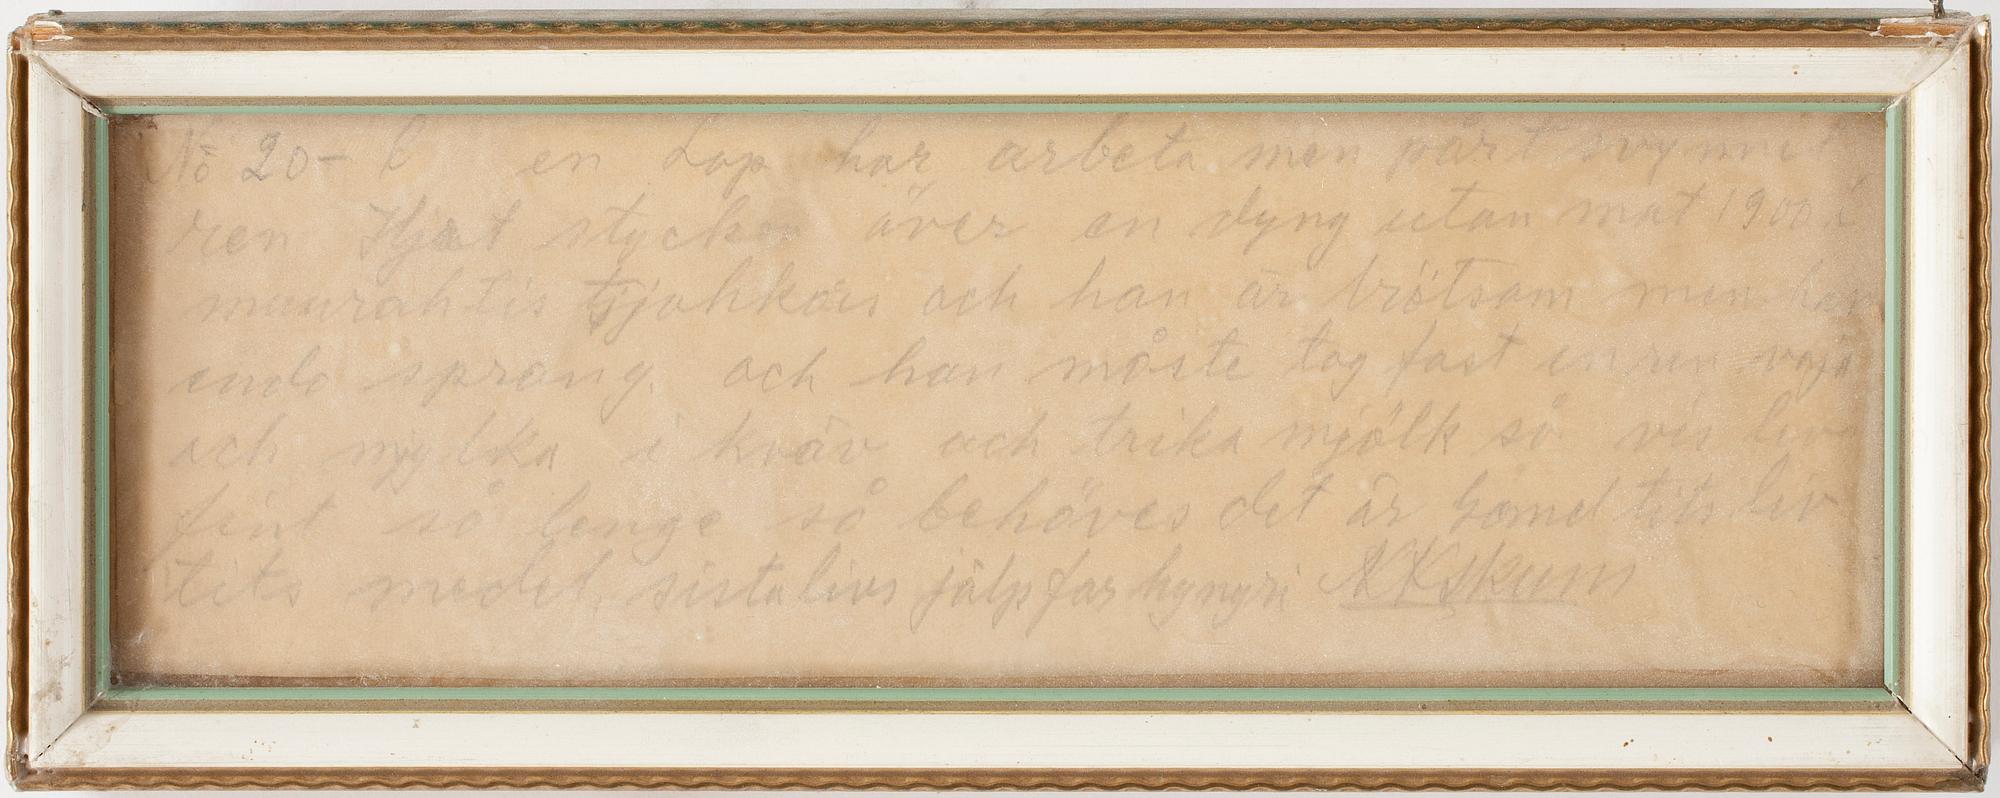 No 20- l en Lap har arbeta men pårt svynni
ren Hjat stycken över en dyng utan mat 1900 i
muurahtis tsjohkars och han är trötsam men han
endo sprang. och han måste tag fast en ren vaja
och mylka i kväv och trika mjölk så vis livs
fint så lenge så behöves det är Samel tits liv
tits medel. sista livs jälp far hyngri NKSkum